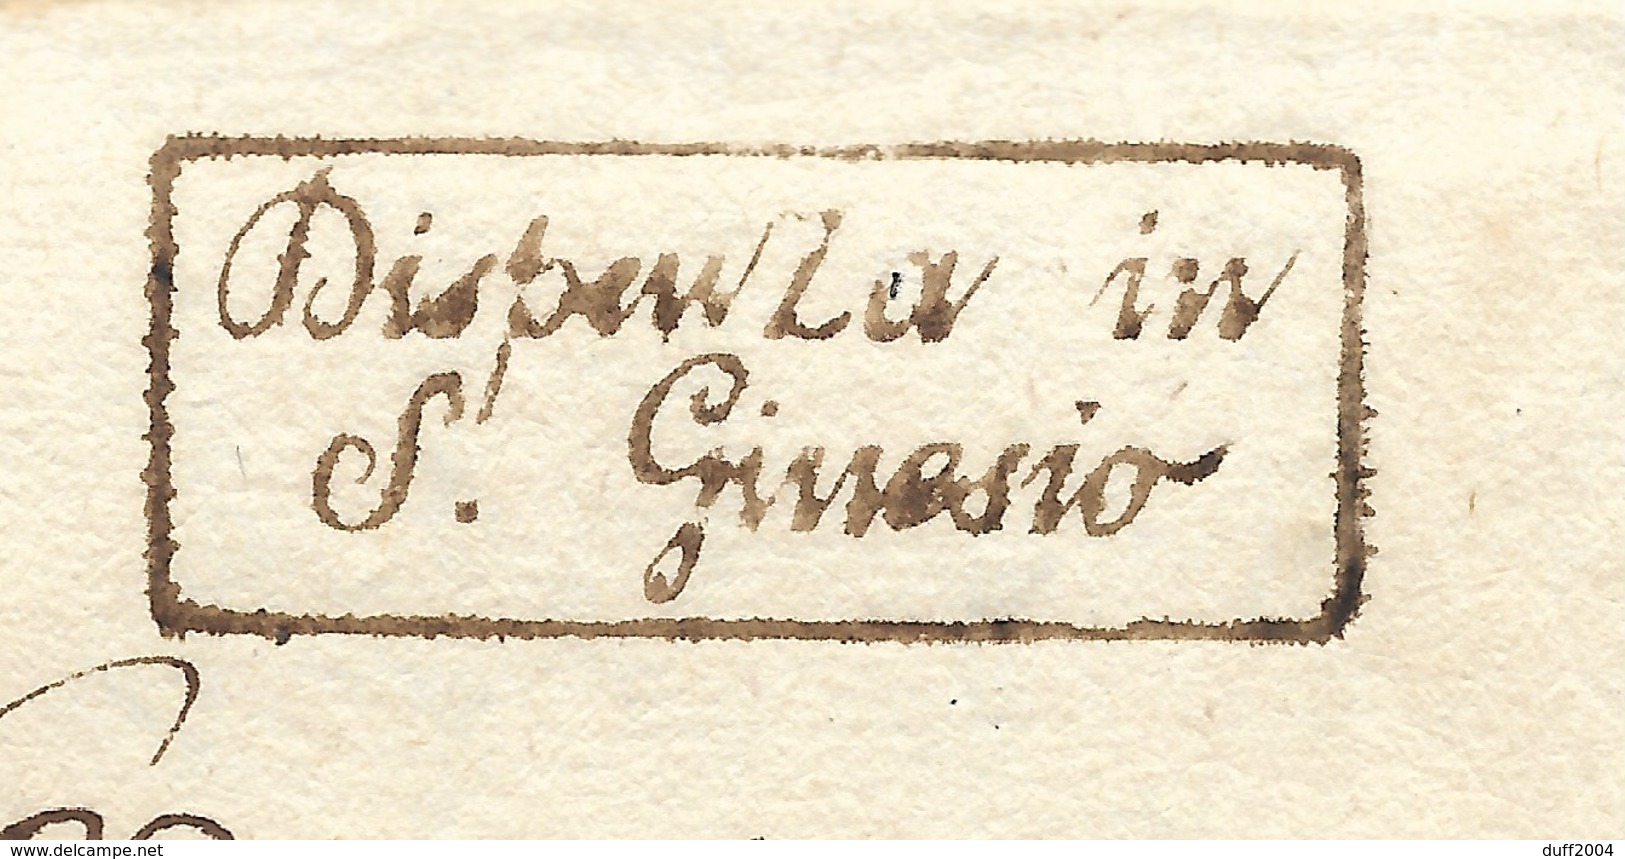 Dispenza in
S. Ginesio
www.delcampe.net
duff2004